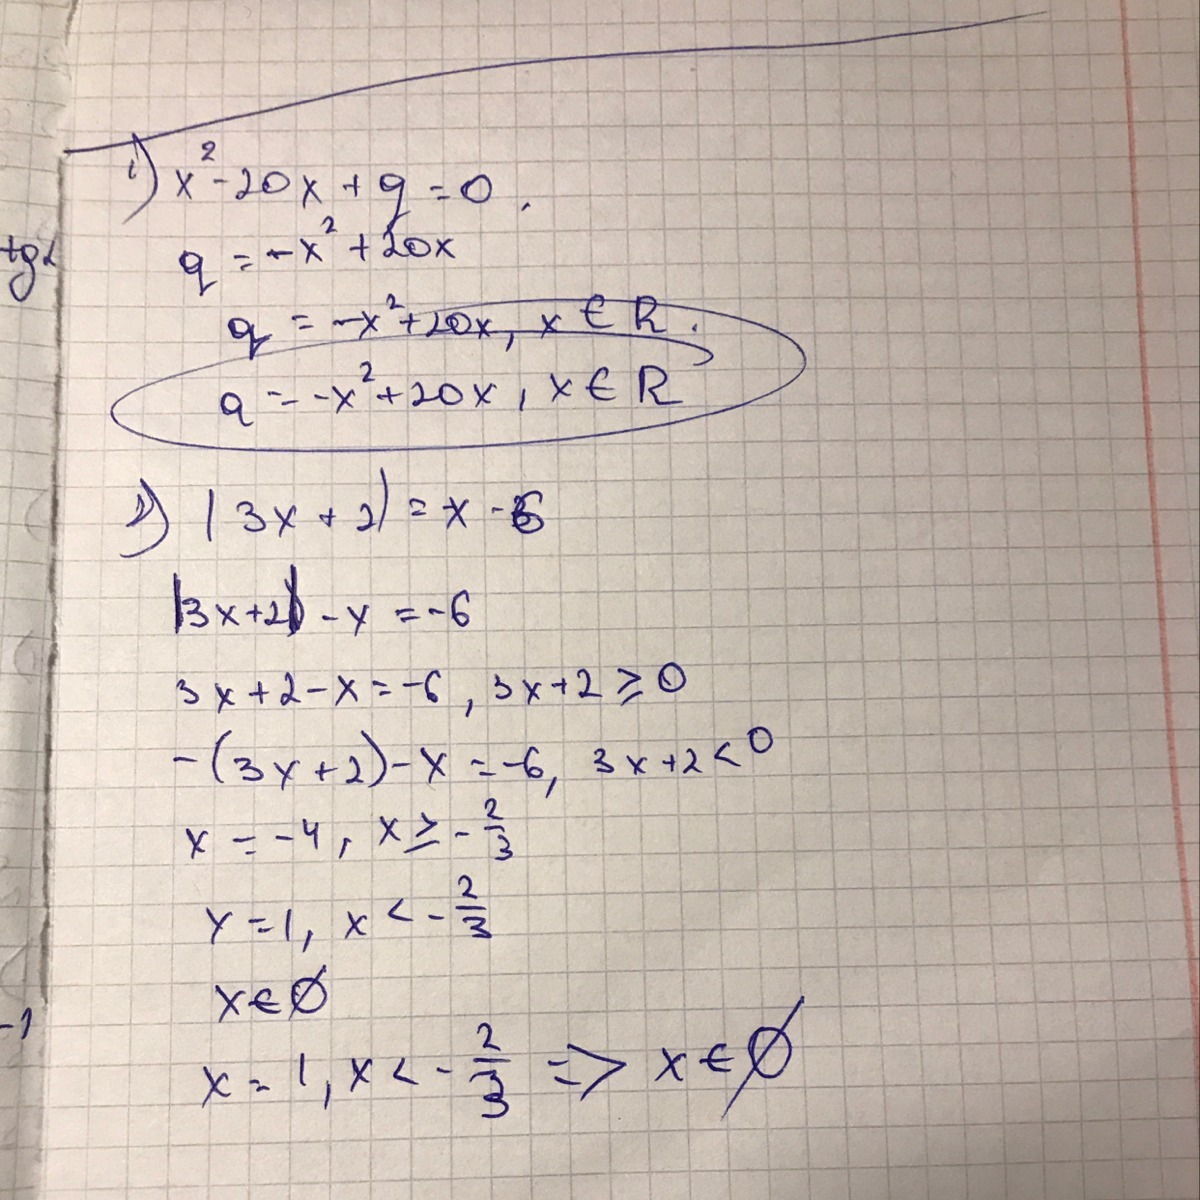 1) x² - 20x + q = 0.
tgα
q = -x² + 20x
q = -x² + 20x, x ∈ R.
q = -x² + 20x, x ∈ R
2) |3x + 2| = x - 6
|3x+2| - x = -6
3x + 2 - x = -6, 3x + 2 ≥ 0
-(3x + 2) - x = -6, 3x + 2 < 0
x = -4, x ≥ -2/3
x = 1, x < -2/3
x ∈ ∅
-1
x = 1, x < -2/3 => x ∈ ∅